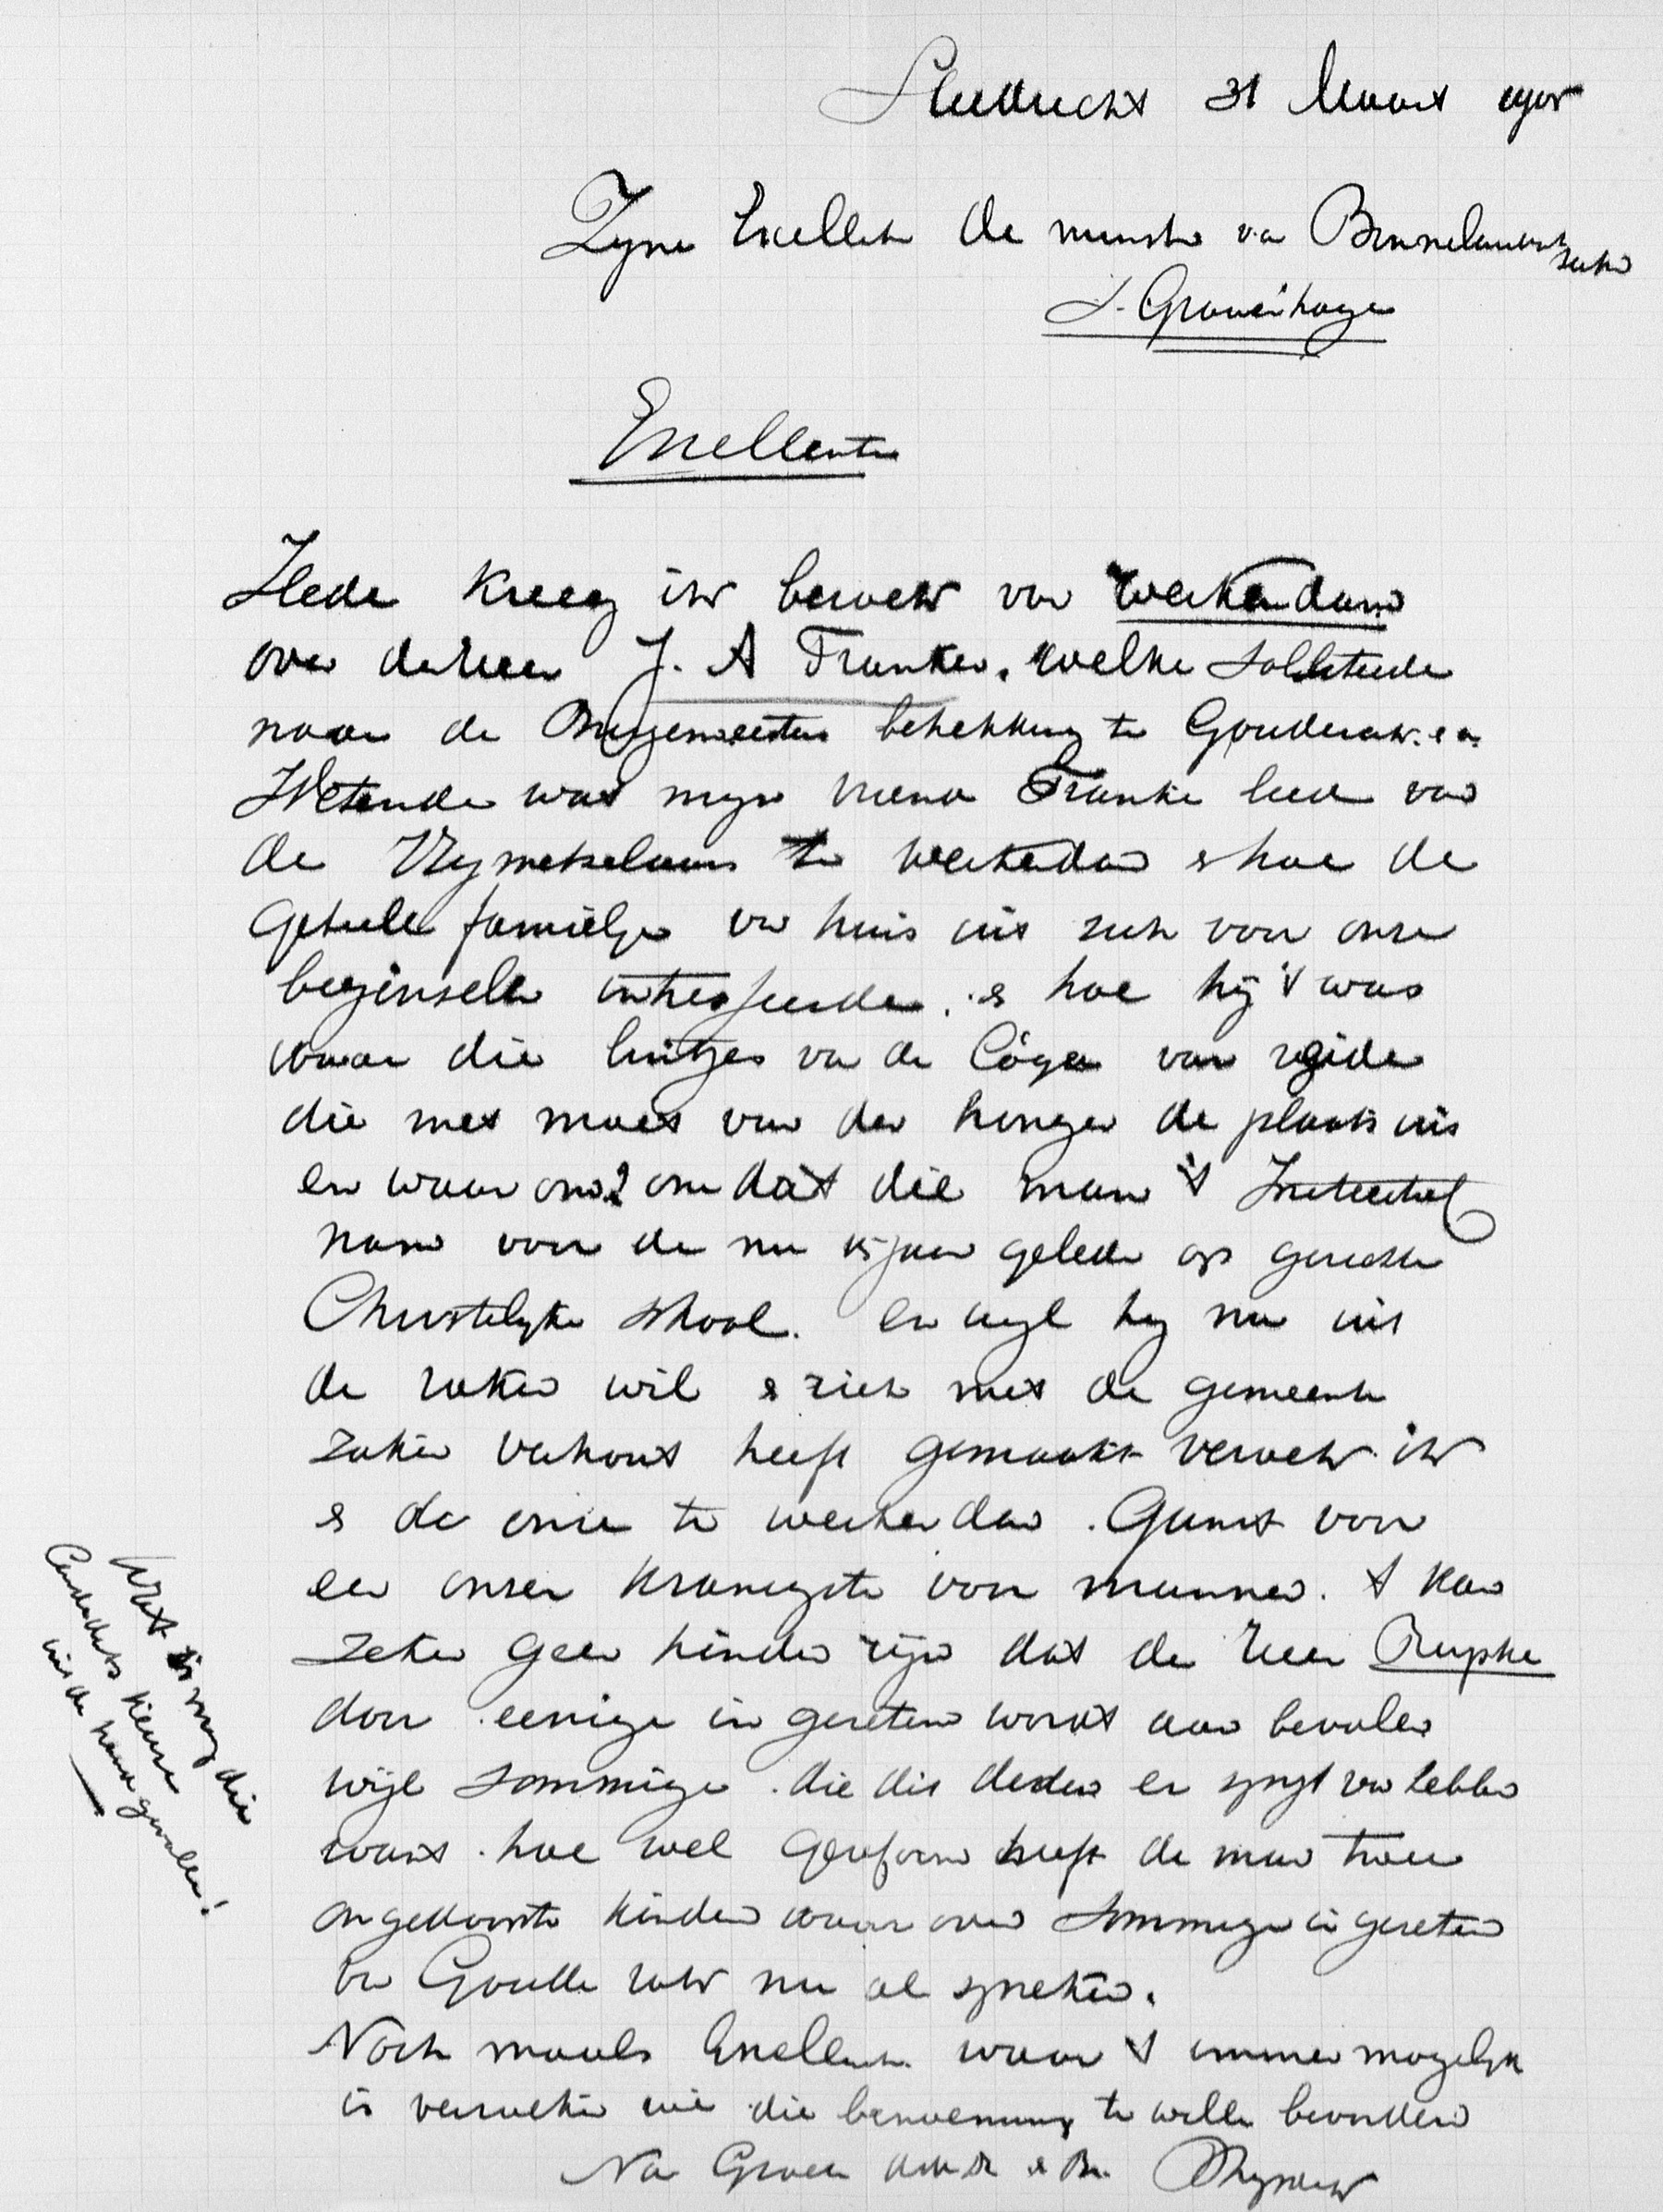 Sliedrecht 31 Maart 1905
Zyne Excellentie de minister van Binnenlandsche
zaken
S-Gravenhage
Excellentie
Hede kreeg ik bezoek van Werkendam
over de heer J. A Franken. welke solliciteerde
naar de Burgemeesters betrekking te Gouderak. en
Wetende wat myn vriend Franke leed van
de Vrymetselaars te Werkendam & hoe de
geheele familje van huis uit zich voor onze
beginselen interesseerde. & hoe hy 't was
waar die luitjes van de Loge van zeiden
die met moet van den honger de plaats uit
en waarom? omdat die man 't Initiatief
nam voor de nu 15 jaar geleden op gerichte
Christelyke School. en wyl hy nu uit
de zaken wil & zich met de gemeente
zaken vertrouwt heeft gemaakt verzoek ik
& de onze te Werkendam. Gunst voor
een onzer kranigste voor mannen. 't kan
zeker geen hinder zijn dat de heer Rupke
door eenige in gezeten wordt aan bevolen
wijl sommige die dit deden er spyt van hebben
want hoe wel Gereform heeft de man twee
ongedoopte kinderen waar over sommige in gezeten
van Gouderak nu al spreken.
Noch maals Excellentie waar 't immer mogelyk
is verzoeken wie die benoeming te willen bevorderen
Na Groete
Wat is my die
Candidaats keuze
uit de hand gevallen!